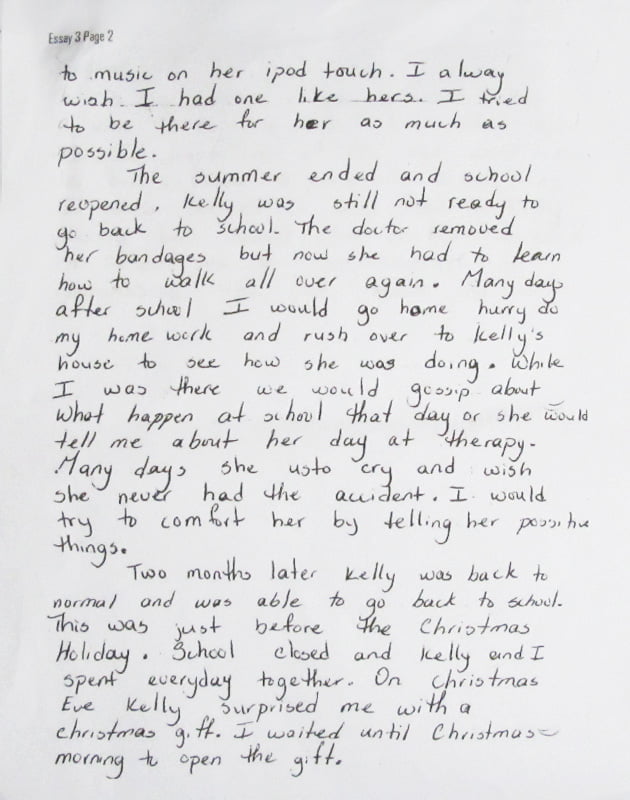 Essay 3 Page 2
to music on her ipod touch. I alway
wish I had one like hers. I tried
to be there for her as much as
possible.
The summer ended and school
reopened, Kelly was still not ready to
go back to school. The doctor removed
her bandages but now she had to learn
how to walk all over again. Many days
after school I would go home hurry do
my home work and rush over to Kelly's
house to see how she was doing. While
I was there we would gossip about
what happen at school that day or she would
tell me about her day at therapy.
Many days she usto cry and wish
she never had the accident. I would
try to comfort her by telling her possitive
things.
Two months later Kelly was back to
normal and was able to go back to school.
This was just before the Christmas
Holiday. School closed and Kelly and I
spent everyday together. On Christmas
Eve Kelly surprised me with a
christmas gift. I waited until Christmas
morning to open the gift.